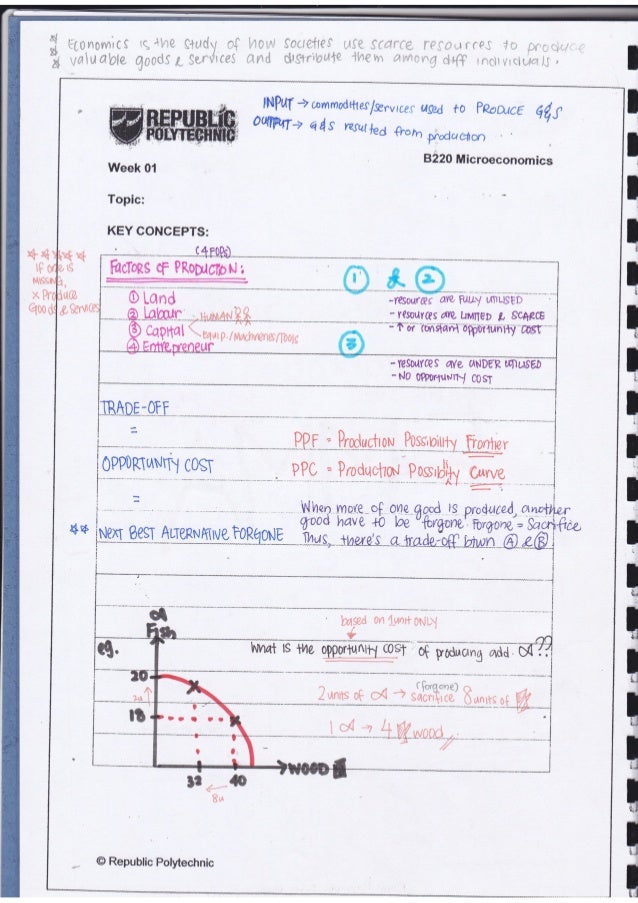 Economics is the study of how societies use scarce resources to produce
valuable goods & services and distribute them among diff individuals.
INPUT → commodities/services used to PRODUCE G&S
OUTPUT → G&S resulted from production
REPUBLIC
POLYTECHNIC
B220 Microeconomics
Week 01
Topic:
KEY CONCEPTS:
(4 FOPs)
FACTORS OF PRODUCTION:
If one is
missing,
x Produce
Goods & Services
① Land
② Labour
③ Capital
④ Entrepreneur
HUMAN
Equip./Machineries/Tools
① & ②
- resources are FULLY UTILISED
- resources are LIMITED & SCARCE
- ↑ or constant opportunity cost
③
- resources are UNDER UTILISED
- NO OPPORTUNITY COST
TRADE-OFF
=
OPPORTUNITY COST
=
NEXT BEST ALTERNATIVE FORGONE
PPF = Production Possibility Frontier
PPC = Production Possiblity Curve
When more of one good is produced, another
good have to be forgone. Forgone = Sacrifice
Thus, there's a trade-off btwn Ⓐ & Ⓑ
based on 1unit ONLY
What is the opportunity cost of producing add. ??
(forgone)
2 units of → sacrifice 8 units of
1 → 4 wood
eg.
Fish
20
2u
18
32
40
8u
WOOD
© Republic Polytechnic